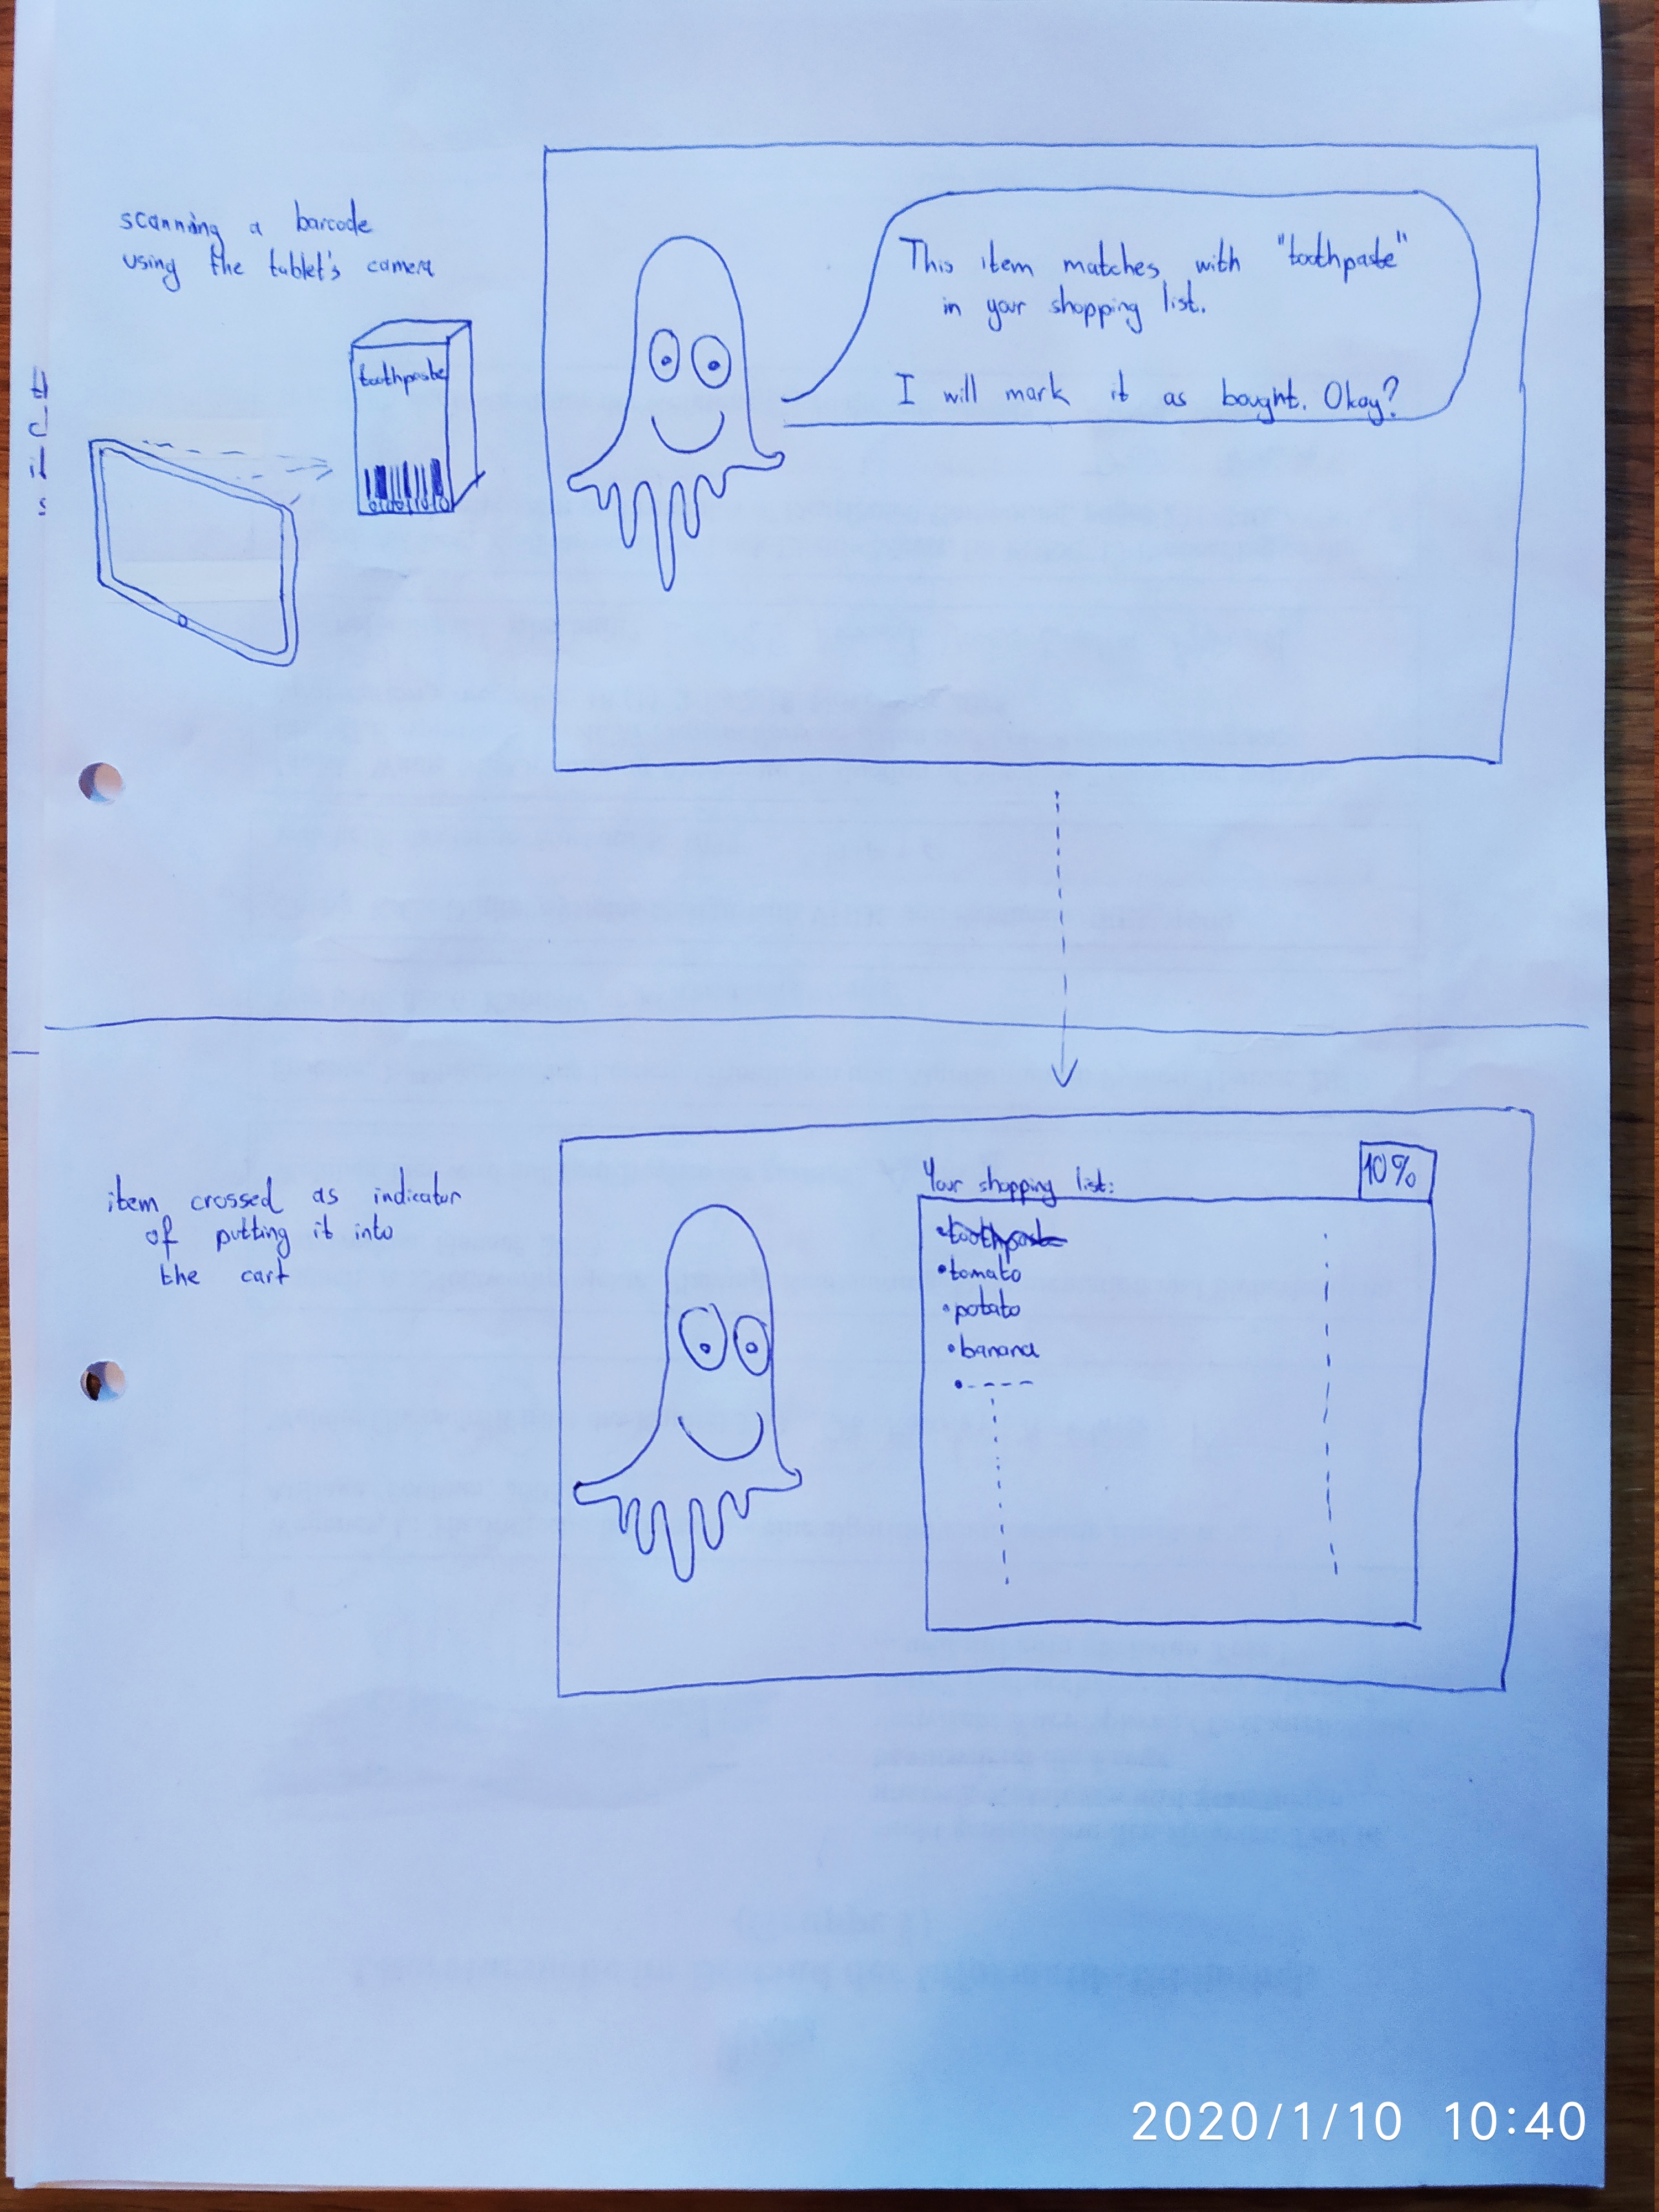 scanning a barcode
using the tablet's camera
toothpaste
This item matches with "toothpaste"
in your shopping list.
I will mark it as bought. Okay?
item crossed as indicator
of putting it into
the cart
Your shopping list:
10%
•toothpaste
•tomato
•potato
•banana
2020/1/10 10:40